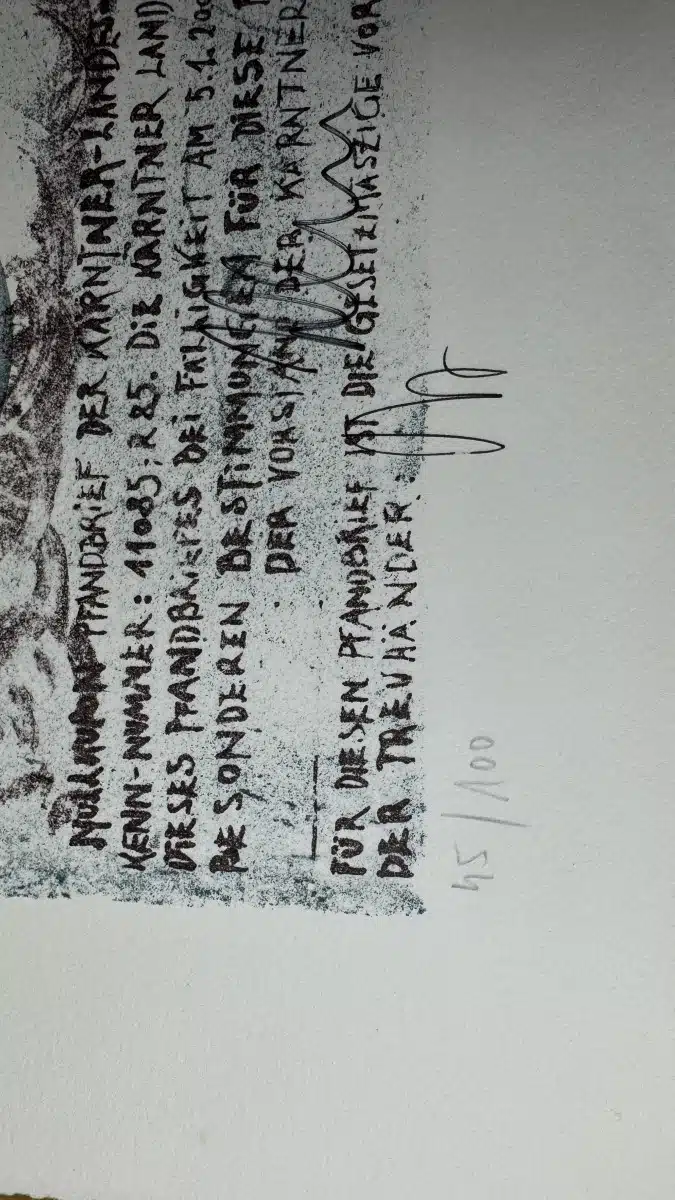 NULLKUPON-PFANDBRIEF DER KÄRNTNER-LANDES-
KENN-NUMMER: 11085; R25. DIE KÄRNTNER LAND
DIESES PFANDBRIEFES BEI FÄLLIGKEIT AM 5.1.20
BESONDEREN BESTIMMUNGEN FÜR DIESE
DER VORSTAND DER KÄRNTNER
FÜR DIESEN PFANDBRIEF IST DIE GESETZMÄSZIGE VOR
DER TREUHÄNDER:
45/100